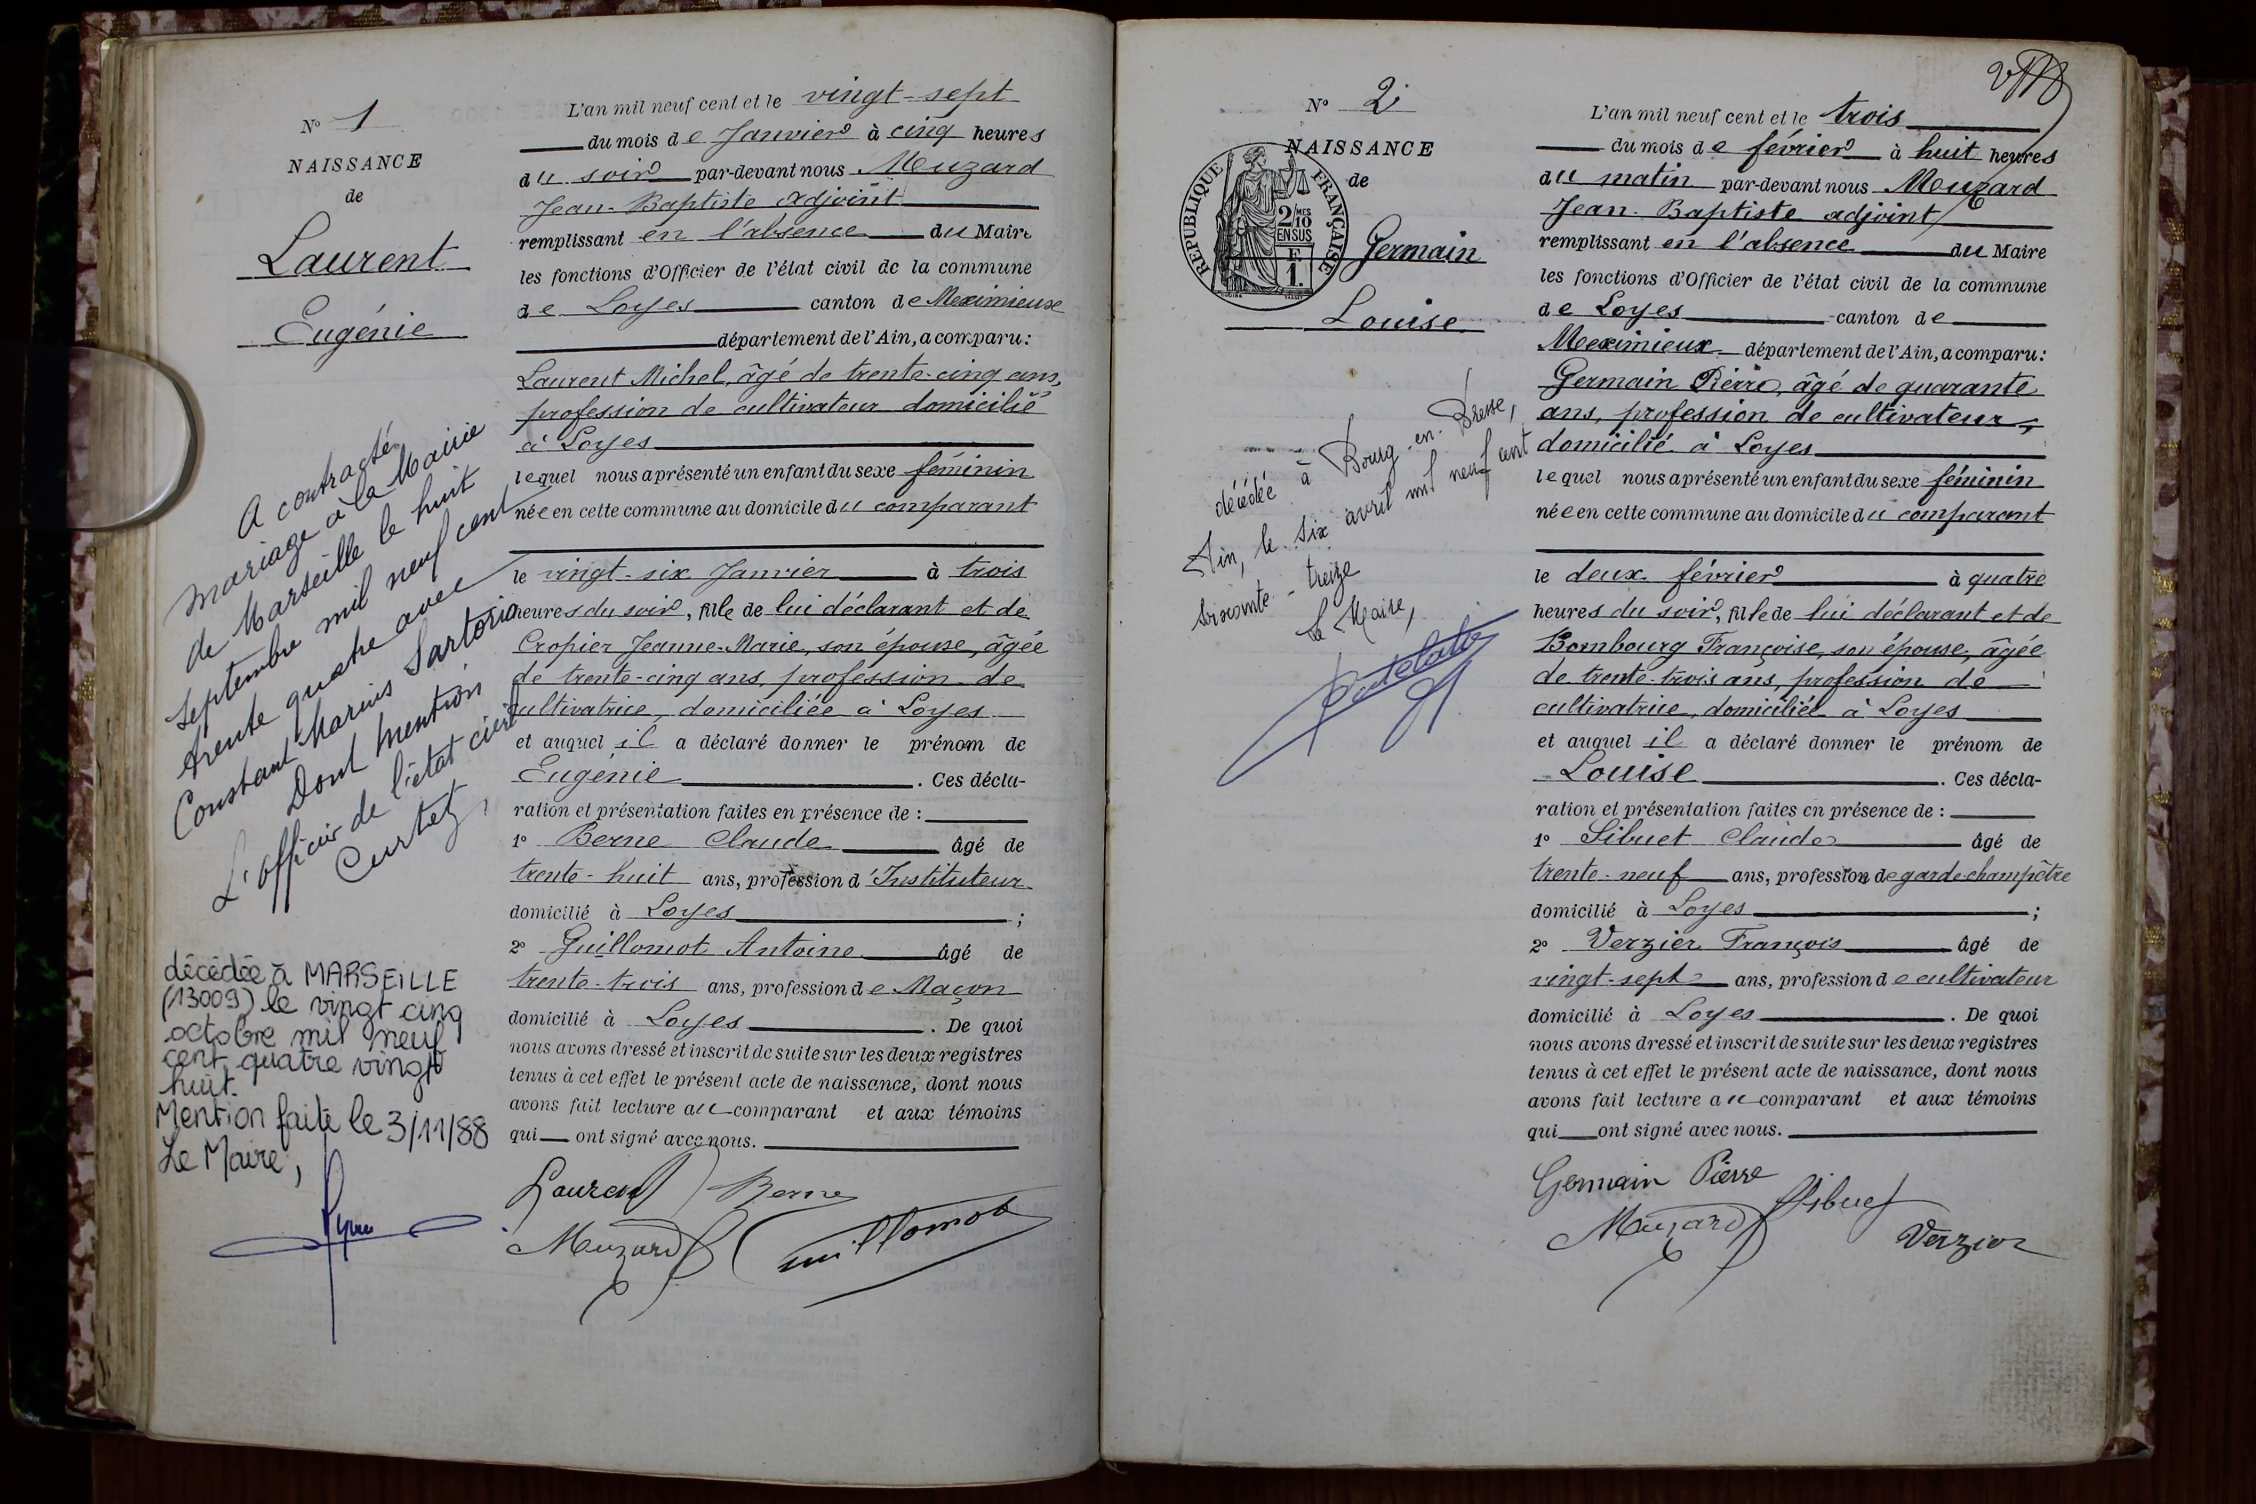 N° 1
NAISSANCE
de
Laurent
Eugénie
A contracté
mariage à la Mairie
de Marseille le huit
septembre mil neuf cent
trente quatre avec
Constant Marius Sartorio
Dont mention
L'officier de l'état civil
Curtet,
décédée à MARSEILLE
(13009) le vingt cinq
octobre mil neuf
cent quatre vingt
huit.
Mention faite le 3/11/88
Le Maire,
L'an mil neuf cent et le vingt-sept
du mois de Janvier à cinq heures
du soir par-devant nous Muzard
Jean-Baptiste adjoint
remplissant en l'absence du Maire
les fonctions d'Officier de l'état civil de la commune
de Loyes canton de Meximieux
département de l'Ain, a comparu:
Laurent Michel, âgé de trente-cinq ans,
profession de cultivateur domicilié
à Loyes
lequel nous a présenté un enfant du sexe féminin
née en cette commune au domicile du comparant
le vingt-six Janvier à trois
heures du soir, fille de lui déclarant et de
Cropier Jeanne-Marie, son épouse, âgée
de trente-cinq ans, profession de
cultivatrice, domiciliée à Loyes
et auquel il a déclaré donner le prénom de
Eugénie. Ces décla-
ration et présentation faites en présence de :
1° Berne Claude âgé de
trente-huit ans, profession d'Instituteur
domicilié à Loyes ;
2° Guillomot Antoine âgé de
trente-trois ans, profession de Maçon
domicilié à Loyes. De quoi
nous avons dressé et inscrit de suite sur les deux registres
tenus à cet effet le présent acte de naissance, dont nous
avons fait lecture au comparant et aux témoins
qui ont signé avec nous.
Laurent Berne
Muzard Guillomot
N° 2
NAISSANCE
de
Germain
Louise
RÉPUBLIQUE FRANÇAISE
2/10 MES
EN SUS
F.
1.
décédée à Bourg-en-Bresse,
Ain, le six avril mil neuf cent
soixante-treize
Le Maire,
L'an mil neuf cent et le trois
du mois de février à huit heures
du matin par-devant nous Muzard
Jean-Baptiste adjoint
remplissant en l'absence du Maire
les fonctions d'Officier de l'état civil de la commune
de Loyes canton de
Meximieux département de l'Ain, a comparu:
Germain Pierre, âgé de quarante
ans, profession de cultivateur,
domicilié à Loyes
lequel nous a présenté un enfant du sexe féminin
née en cette commune au domicile du comparant
le deux février à quatre
heures du soir, fille de lui déclarant et de
Bombourg Françoise, son épouse, âgée
de trente-trois ans, profession de
cultivatrice, domiciliée à Loyes
et auquel il a déclaré donner le prénom de
Louise. Ces décla-
ration et présentation faites en présence de :
1° Sibuet Claude âgé de
trente-neuf ans, profession de garde-champêtre
domicilié à Loyes ;
2° Verzier François âgé de
vingt-sept ans, profession de cultivateur
domicilié à Loyes. De quoi
nous avons dressé et inscrit de suite sur les deux registres
tenus à cet effet le présent acte de naissance, dont nous
avons fait lecture au comparant et aux témoins
qui ont signé avec nous.
Germain Pierre
Muzard Sibuet
Verzier